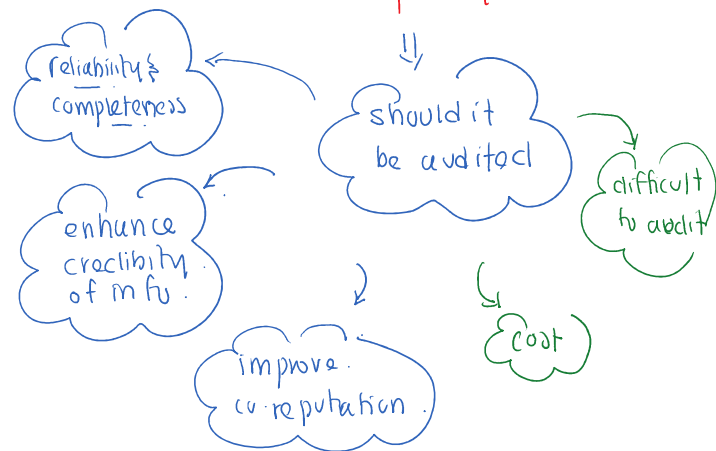 reliability &
completeness
should it
be audited
difficult
to audit
enhance
credibity
of info.
cost
improve.
co. reputation.